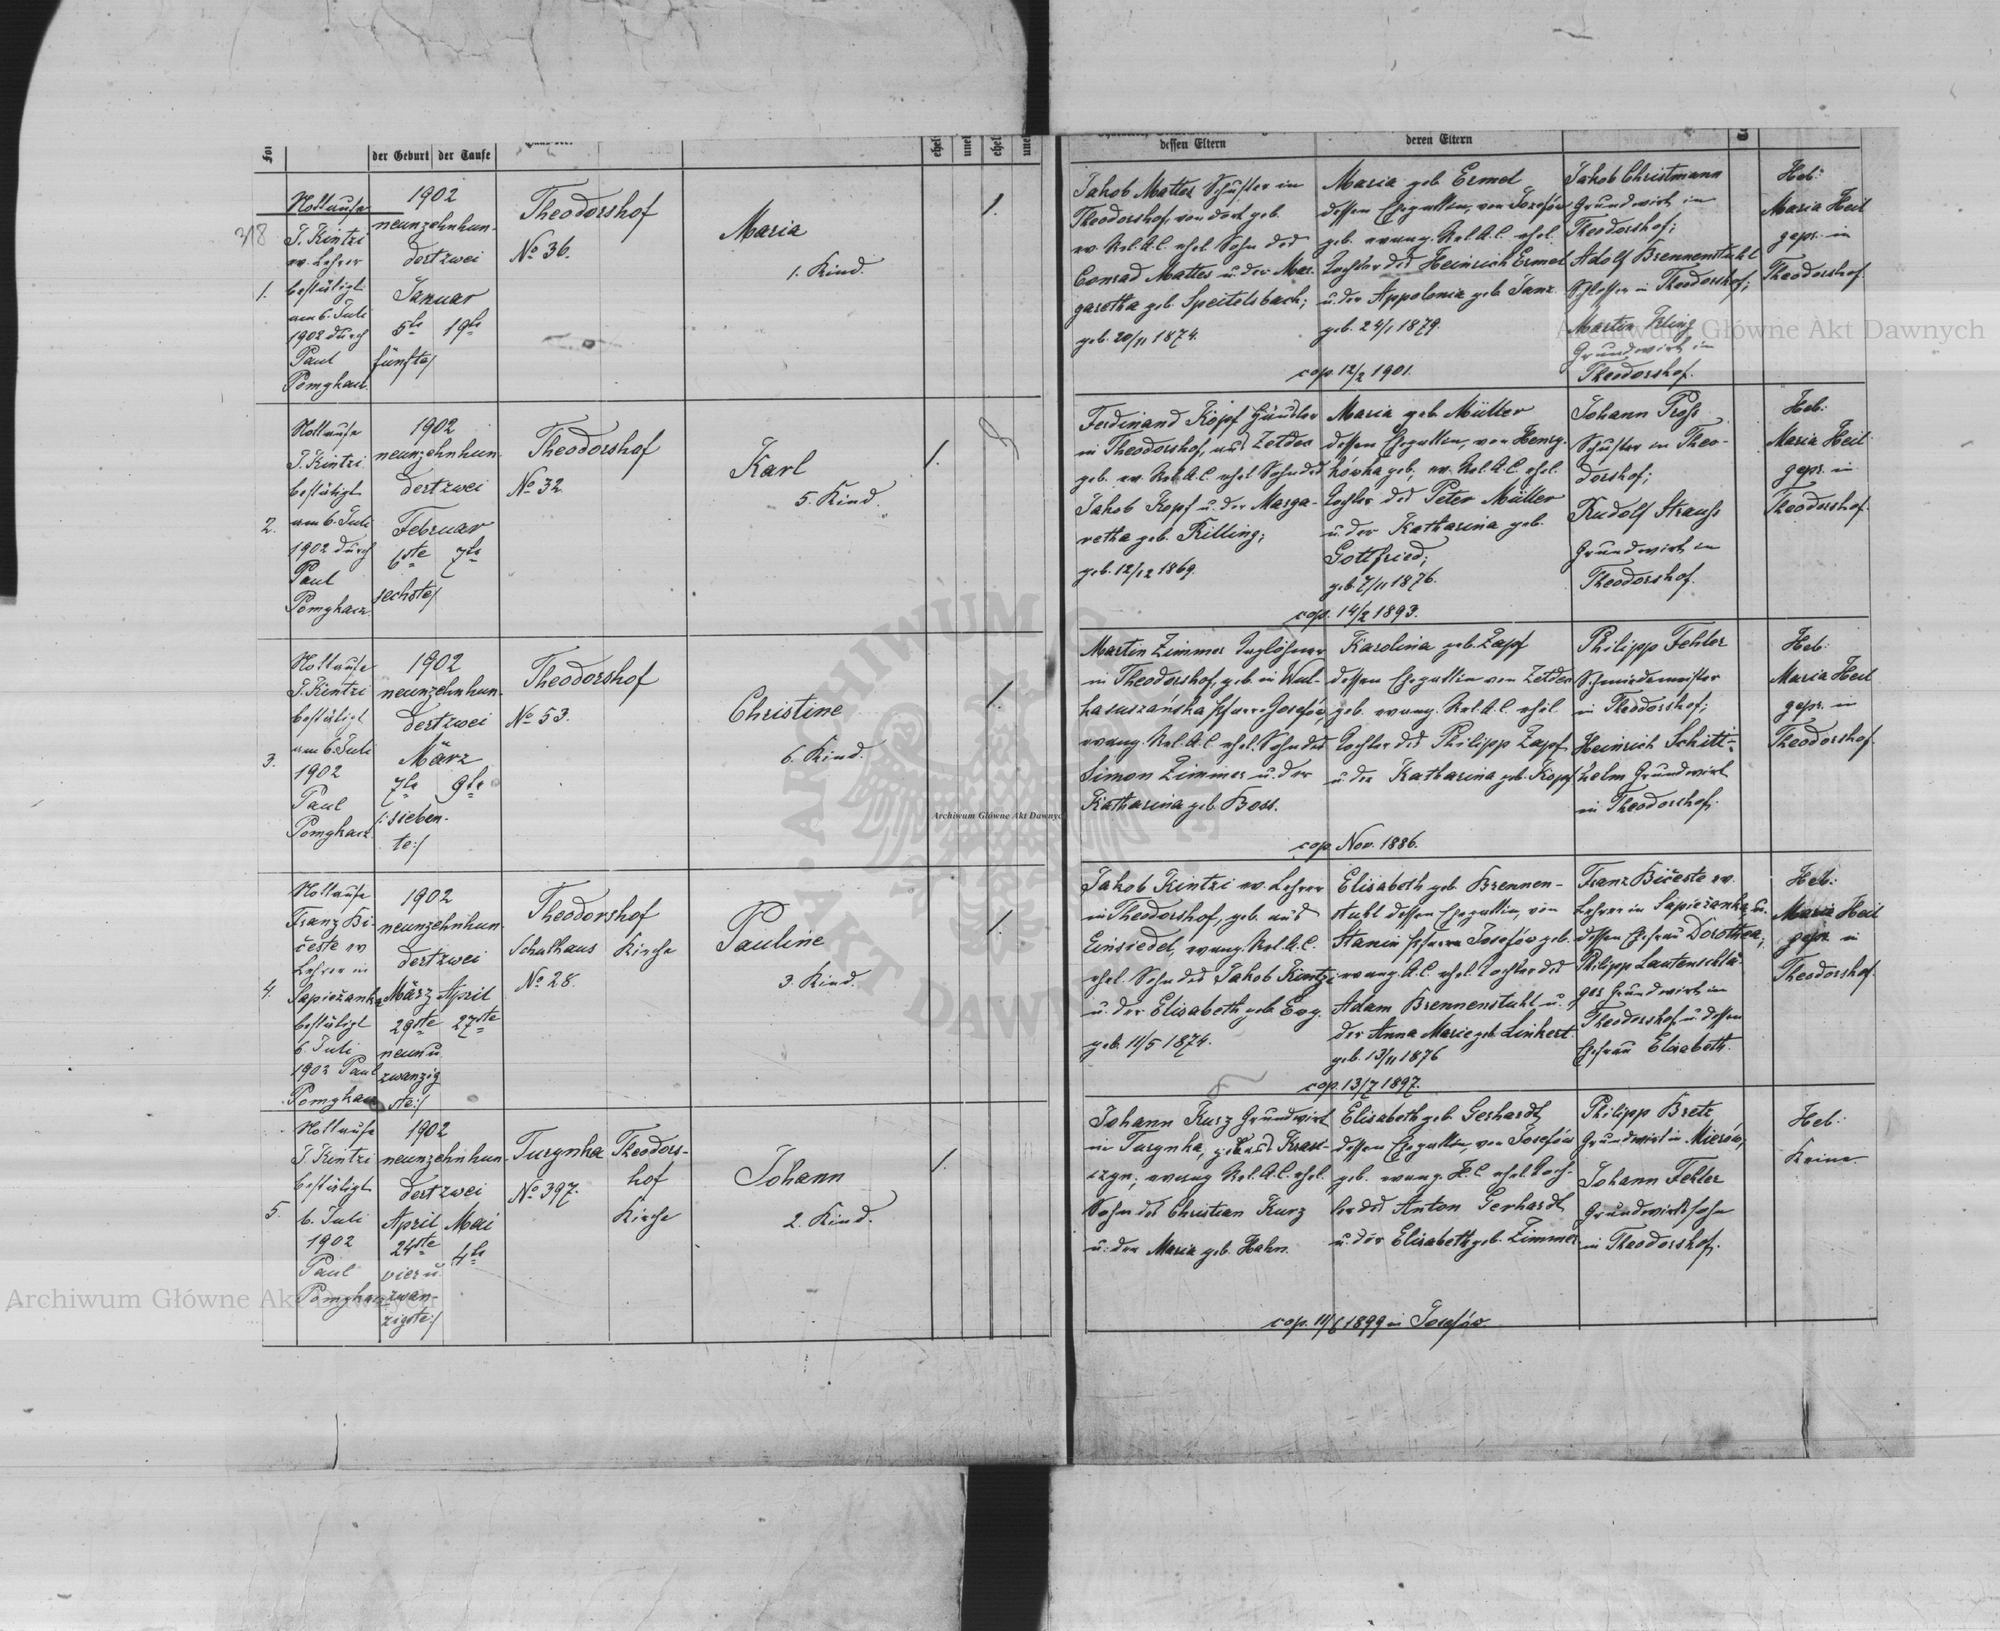 der Geburt
der Taufe
ehel
unel
ehel
une
dessen Eltern
deren Eltern
318
1.
Nottaufe
J. Kintzi
ev. Lehrer
bestätigt
am 6. Juli
1902 durch
Paul
Pomykacz
1902
neunzehnhun-
dertzwei
Januar
5te 19te
fünfte/
Theodorshof
No 36.
Maria
1. Kind.
1.
Jakob Mattes Schuster in
Theodorshof, von dort geb.
ev. Rel. A.C. ehel. Sohn des
Conrad Mattes u. der Mar-
garetha geb. Speitelsbach;
geb. 20/11 1874.
Maria geb. Ermel
dessen Ehegattin, von Josefów
geb. evang. Rel. A.C. ehel.
Tochter des Heinrich Ermel
u. der Appolonia geb. Janz.
geb. 24/1 1879.
cop. 12/2 1901.
Jakob Christmann
Grundwirt in
Theodorshof;
Adolf Brennenstuhl
Schlosser in Theodorshof;
Martin Kling
Grundwirt in
Theodorshof.
Heb:
Maria Heil
gepr. in
Theodorshof
2.
Nottaufe
J. Kintzi
bestätigt
am 6. Juli
1902 durch
Paul
Pomykacz
1902
neunzehnhun-
dertzwei
Februar
6ste 7te
sechste/
Theodorshof
No 32.
Karl
5. Kind.
1.
Ferdinand Kopf Händler
in Theodorshof, aus Zeldec
geb. ev. Rel. A.C. ehel. Sohn des
Jakob Kopf u. der Marga-
retha geb. Killing;
geb. 12/12 1869.
Maria geb. Müller
dessen Ehegattin, von Heny-
kówka geb. ev. Rel. A.C. ehel.
Tochter des Peter Müller
u. der Katharina geb.
Gottfried;
geb. 7/11 1876.
cop. 14/2 1893.
Johann Pross
Schuster in Theo-
dorshof;
Rudolf Strauss
Grundwirt in
Theodorshof.
Heb:
Maria Heil
gepr. in
Theodorshof.
3.
Nottaufe
J. Kintzi
bestätigt
am 6. Juli
1902
Paul
Pomykacz
1902
neunzehnhun-
dertzwei
März
7te 9te
/:sieben-
te:/
Theodorshof
No 53.
Christine
6. Kind.
1.
Martin Zimmer Taglöhner
in Theodorshof, geb. in Wul-
kasuszańska Pfarre Josefów,
evang. Rel. A.C. ehel. Sohn des
Simon Zimmer u. der
Katharina geb. Boss.
Karolina geb. Zapf
dessen Ehegattin von Zeldec
geb. evang. Rel. A.C. ehel.
Tochter des Philipp Zapf
u. der Katharina geb. Kopf
cop. Nov. 1886.
Philipp Fehler
Schmiedemeister
in Theodorshof;
Heinrich Schitt-
helm Grundwirt
in Theodorshof.
Heb:
Maria Heil
gepr. in
Theodorshof.
4.
Nottaufe
Franz Bi-
česte ev.
Lehrer in
Sapieżanka
bestätigt
6. Juli
1902 Paul
Pomykacz
1902
neunzehnhun-
dertzwei
März April
29ste 27ste
neun u.
zwanzig
ste:/
Theodorshof
Schulhaus Kirche
No 28.
Pauline
3. Kind.
1.
Jakob Kintzi ev. Lehrer
in Theodorshof, geb. aus
Einsiedel, evang. Rel. A.C.
ehel. Sohn des Jakob Kintzi
u. der Elisabeth geb. Ewy.
geb. 11/5 1874.
Elisabeth geb. Brennen-
stuhl dessen Ehegattin, von
Stanin Pfarre Josefów geb.
evang. A.C. ehel. Tochter des
Adam Brennenstuhl u.
der Anna Marie geb. Linkert.
geb. 13/11 1876
cop. 13/7 1897.
Franz Bičeste ev.
Lehrer in Sapieżanka, u.
dessen Ehefrau Dorothea;
Philipp Lautenschlä-
ger Grundwirt in
Theodorshof u. dessen
Ehefrau Elisabeth.
Heb:
Maria Heil
gepr. in
Theodorshof
5.
Nottaufe
J. Kintzi
bestätigt
6. Juli
1902
Paul
Pomykacz
1902
neunzehnhun-
dertzwei
April Mai
24ste 4te
vier u.
zwan-
zigste:/
Turynka Theodors-
hof
No 397. Kirche
Johann
2. Kind.
1.
Johann Kurz Grundwirt
in Turynka, geb. aus
evang. Rel. A.C. ehel.
Sohn des Christian Kurz
u. der Maria geb. Hahn.
Elisabeth geb. Gerhardt
dessen Ehegattin, von Josefów
geb. evang. H.C. ehel. Toch-
ter des Anton Gerhardt
u. der Elisabeth geb. Zimmer
cop. 11/6 1899 in Josefów.
Philipp Bretz
Grundwirt in Mierów,
Johann Fehler
Grundwirtssohn
in Theodorshof.
Heb:
Keine.
Archiwum Główne Akt Dawnych
Archiwum Główne Akt Dawnych
Archiwum Główne Akt Dawnych